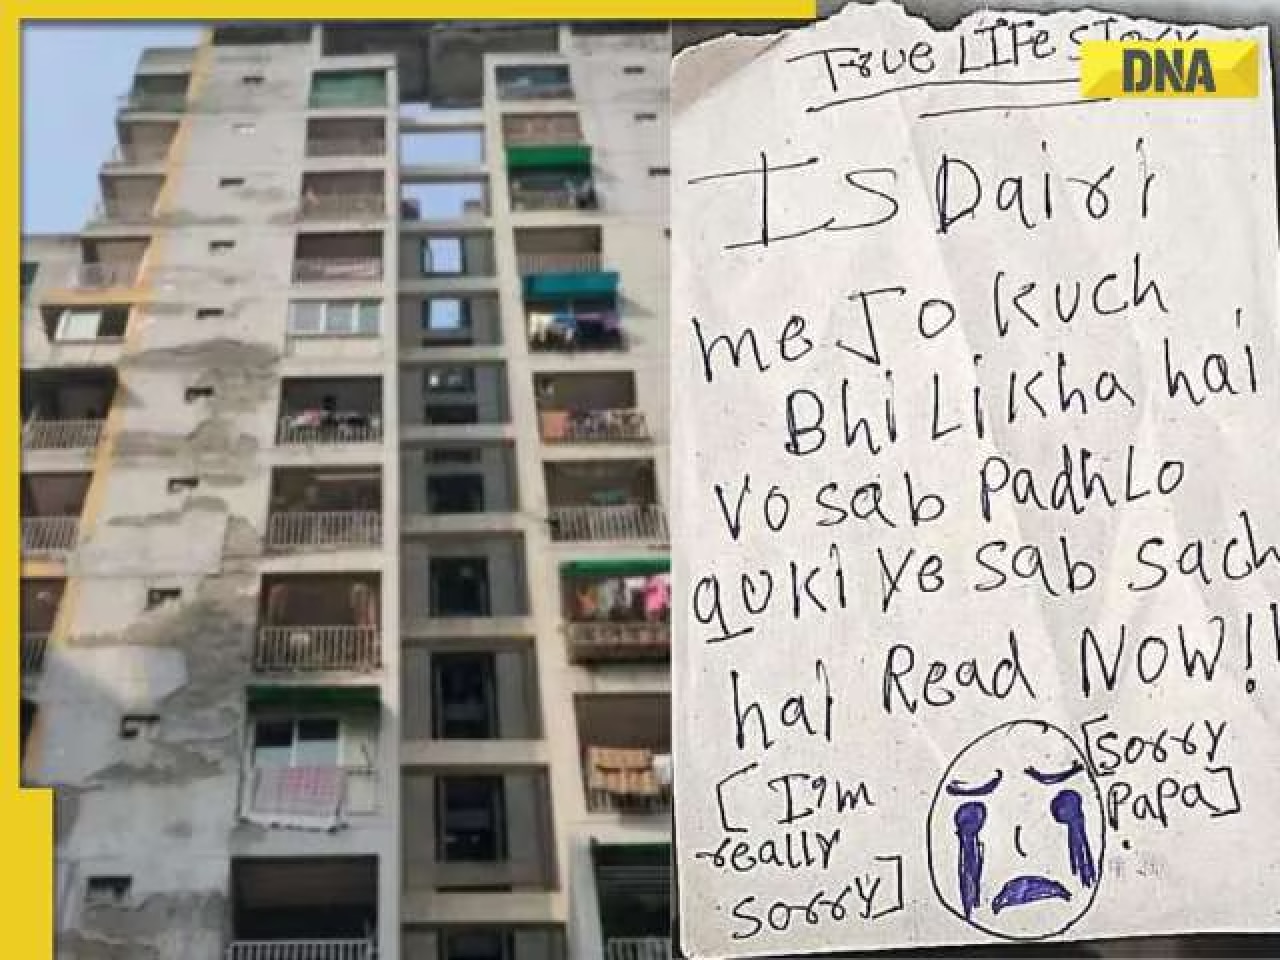 True LIFe Story
DNA
IS Dairi
me Jo kuch
Bhi Likha hai
Vo sab Padh Lo
quki ye sab sach
hai Read NOW!!
[Sorry
Papa]
[I'm
really
sorry]